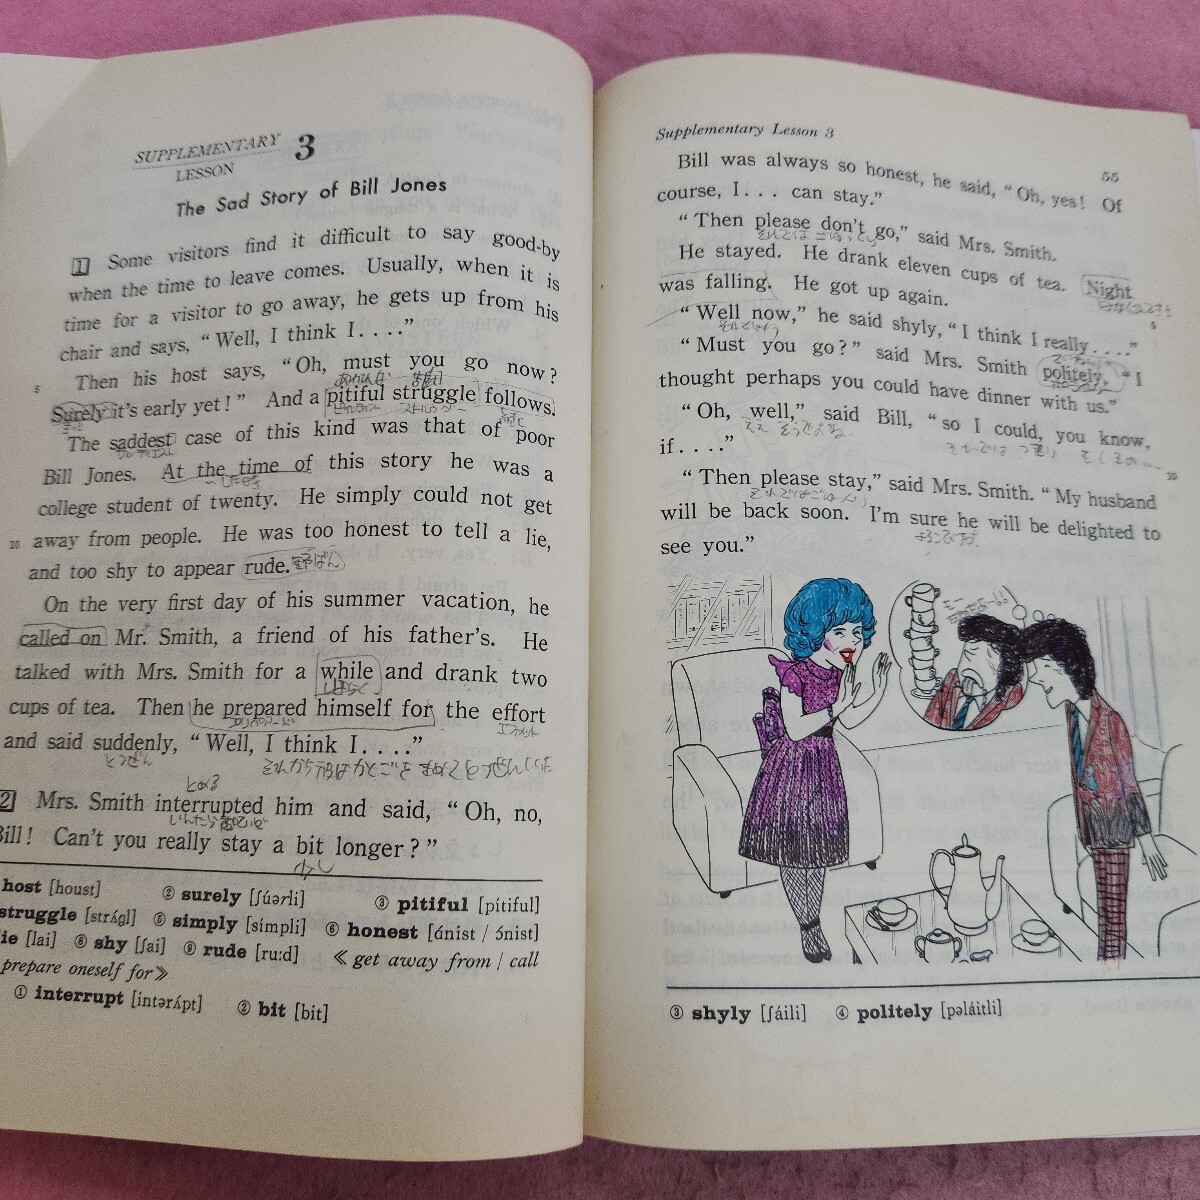 SUPPLEMENTARY LESSON 3
The Sad Story of Bill Jones
1 Some visitors find it difficult to say good-by
when the time to leave comes. Usually, when it is
time for a visitor to go away, he gets up from his
chair and says, “Well, I think I....”
Then his host says, “Oh, must you go now?
5
Surely it's early yet!” And a pitiful struggle follows.
The saddest case of this kind was that of poor
Bill Jones. At the time of this story he was a
college student of twenty. He simply could not get
10 away from people. He was too honest to tell a lie,
and too shy to appear rude. 野ばん
On the very first day of his summer vacation, he
called on Mr. Smith, a friend of his father's. He
talked with Mrs. Smith for a while and drank two
しばらく
cups of tea. Then he prepared himself for the effort
and said suddenly, “Well, I think I....”
とつぜん
2 Mrs. Smith interrupted him and said, “Oh, no,
Bill! Can't you really stay a bit longer?”
少し
host [houst] ② surely [ʃúərli] ③ pitiful [pítiful]
struggle [strʌ́gl] ⑤ simply [símpli] ⑥ honest [ánist / ɔ́nist]
lie [lai] ⑧ shy [ʃai] ⑨ rude [ru:d] ≪ get away from / call
prepare oneself for≫
① interrupt [intərʌ́pt] ② bit [bit]
Supplementary Lesson 3
55
Bill was always so honest, he said, “Oh, yes! Of
course, I... can stay.”
“Then please don't go,” said Mrs. Smith.
He stayed. He drank eleven cups of tea. Night
was falling. He got up again.
5
“Well now,” he said shyly, “I think I really....”
“Must you go?” said Mrs. Smith politely, “I
thought perhaps you could have dinner with us.”
“Oh, well,” said Bill, “so I could, you know,
if....”
10
“Then please stay,” said Mrs. Smith. “My husband
will be back soon. I'm sure he will be delighted to
see you.”
③ shyly [ʃáili] ④ politely [pəláitli]